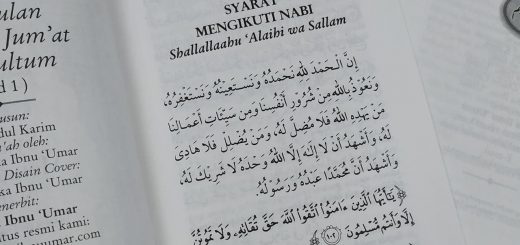 ulan
Jum'at
ultum
d 1 )
usun:
dul Karim
h'ah oleh:
ka Ibnu 'Umar
Disain Cover:
ka Ibnu 'Umar
nerbit:
Ibnu 'Umar
tus resmi kami:
nuumar.com
SYARAT
MENGIKUTI NABI
Shallallaahu 'Alaihi wa Sallam
إِنَّ الْحَمْدَ لِلَّهِ نَحْمَدُهُ وَنَسْتَعِينُهُ وَنَسْتَغْفِرُهُ،
وَنَعُوذُ بِاللَّهِ مِنْ شُرُورِ أَنْفُسِنَا وَمِنْ سَيِّئَاتِ أَعْمَالِنَا
مَنْ يَهْدِهِ اللَّهُ فَلَا مُضِلَّ لَهُ، وَمَنْ يُضْلِلْ فَلَا هَادِيَ
لَهُ، وَأَشْهَدُ أَنْ لَا إِلَهَ إِلَّا اللَّهُ وَحْدَهُ لَا شَرِيكَ لَهُ،
وَأَشْهَدُ أَنَّ مُحَمَّدًا عَبْدُهُ وَرَسُولُهُ.
﴿ يَٰٓأَيُّهَا ٱلَّذِينَ ءَامَنُوا۟ ٱتَّقُوا۟ ٱللَّهَ حَقَّ تُقَاتِهِۦ وَلَا تَمُوتُنَّ
إِلَّا وَأَنتُم مُّسْلِمُونَ ١٠٢ ﴾